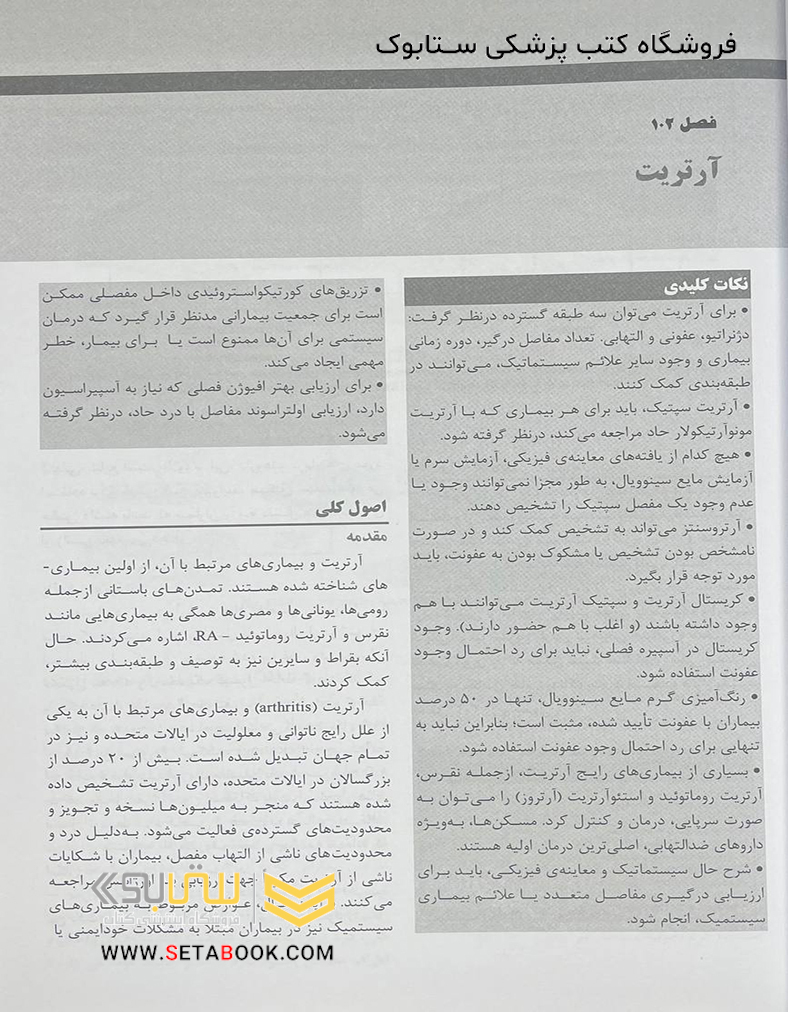 فروشگاه کتب پزشکی ستابوک
فصل ۱۰۲
آرتریت
نکات کلیدی
• برای آرتریت می‌توان سه طبقه گسترده درنظر گرفت:
دژنراتیو، عفونی و التهابی. تعداد مفاصل درگیر، دوره زمانی
بیماری و وجود سایر علائم سیستماتیک، می‌توانند در
طبقه‌بندی کمک کنند.
• آرتریت سپتیک، باید برای هر بیماری که با آرتریت
مونوآرتیکولار حاد مراجعه می‌کند، درنظر گرفته شود.
• هیچ کدام از یافته‌های معاینه‌ی فیزیکی، آزمایش سرم یا
آزمایش مایع سینوویال، به طور مجزا نمی‌توانند وجود یا
عدم وجود یک مفصل سپتیک را تشخیص دهند.
• آرتروسنتز می‌تواند به تشخیص کمک کند و در صورت
نامشخص بودن تشخیص یا مشکوک بودن به عفونت، باید
مورد توجه قرار بگیرد.
• کریستال آرتریت و سپتیک آرتریت می‌توانند با هم
وجود داشته باشند (و اغلب با هم حضور دارند). وجود
کریستال در آسپیره فصلی، نباید برای رد احتمال وجود
عفونت استفاده شود.
• رنگ‌آمیزی گرم مایع سینوویال، تنها در ۵۰ درصد
بیماران با عفونت تأیید شده، مثبت است؛ بنابراین نباید به
تنهایی برای رد احتمال وجود عفونت استفاده شود.
• بسیاری از بیماری‌های رایج آرتریت، ازجمله نقرس،
آرتریت روماتوئید و استئوآرتریت (آرتروز) را می‌توان به
صورت سرپایی، درمان و کنترل کرد. مسکن‌ها، به‌ویژه
داروهای ضدالتهابی، اصلی‌ترین درمان اولیه هستند.
• شرح حال سیستماتیک و معاینه‌ی فیزیکی، باید برای
ارزیابی درگیری مفاصل متعدد یا علائم بیماری
سیستمیک، انجام شود.
• تزریق‌های کورتیکواستروئیدی داخل مفصلی ممکن
است برای جمعیت بیمارانی مدنظر قرار گیرد که درمان
سیستمی برای آن‌ها ممنوع است یا برای بیمار، خطر
مهمی ایجاد می‌کند.
• برای ارزیابی بهتر افیوژن فصلی که نیاز به آسپیراسیون
دارد، ارزیابی اولتراسوند مفاصل با درد حاد، درنظر گرفته
می‌شود.
اصول کلی
مقدمه
آرتریت و بیماری‌های مرتبط با آن، از اولین بیماری-
های شناخته شده هستند. تمدن‌های باستانی ازجمله
رومی‌ها، یونانی‌ها و مصری‌ها همگی به بیماری‌هایی مانند
نقرس و آرتریت روماتوئید – RA، اشاره می‌کردند. حال
آنکه بقراط و سایرین نیز به توصیف و طبقه‌بندی بیشتر،
کمک کردند.
آرتریت (arthritis) و بیماری‌های مرتبط با آن به یکی
از علل رایج ناتوانی و معلولیت در ایالات متحده و نیز در
تمام جهان تبدیل شده است. بیش از ۲۰ درصد از
بزرگسالان در ایالات متحده، دارای آرتریت تشخیص داده
شده هستند که منجر به میلیون‌ها نسخه و تجویز و
محدودیت‌های گسترده‌ی فعالیت می‌شود. به‌دلیل درد و
محدودیت‌های ناشی از التهاب مفصل، بیماران با شکایات
ناشی از آرتریت جهت مراجعه
می‌کنند. عوارض مربوط به بیماری‌های
سیستمیک نیز در بیماران مبتلا به مشکلات خودایمنی یا
ستابوک
فروشگاه اینترنتی کتاب
WWW.SETABOOK.COM